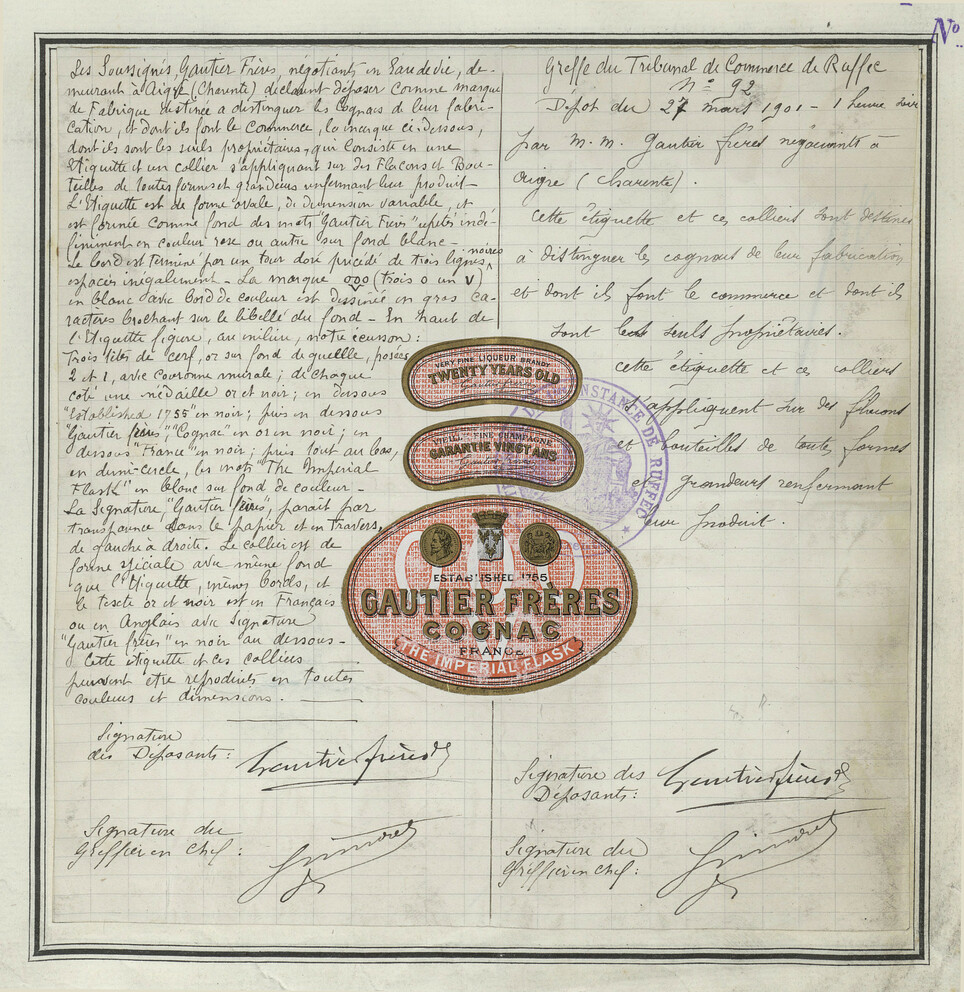 Les Soussignés, Gautier Frères, négotiants en Eau de vie, de-
meurant à Aigre (Charente) déclarent déposer comme marque
de Fabrique destinée a distinguer les Cognacs de leur fabri-
cation, et dont ils font le Commerce, la marque ci-dessous,
dont ils sont les seuls propriétaires, qui consiste en une
Etiquette et un collier s'appliquant sur des Flacons et Bou-
teilles de toutes formes et grandeurs renfermant leur produit –
L'Etiquette est de forme ovale, de dimension variable, et
est formée comme fond des mots "Gautier Frères" répétés indé-
finiment en couleur rose ou autre sur fond blanc –
Le bord est terminé par un tour doré précédé de trois lignes noires
espacées inégalement – La marque 000 (trois O un V)
en blanc avec bord de couleur est dessinée en gros ca-
ractères brochant sur le libellé du fond – En haut de
l'Etiquette figure, au milieu, notre écusson :
Trois têtes de cerf, or sur fond de gueulle, posées
2 et 1, avec couronne murale ; de chaque
coté une médaille or et noir ; en dessous
"Established 1755" en noir ; puis en dessous
"Gautier frères", "Cognac" en or en noir ; en
dessous "France" en noir ; puis tout au bas,
en demi-cercle, les mots "The Imperial
Flask" en blanc sur fond de couleur –
La Signature "Gautier frères", paraît par
transparence dans le papier et en travers,
de gauche à droite. Le collier est de
forme spéciale avec même fond
que l'Etiquette, mêmes bords, et
le texte or et noir est en Français
ou en Anglais avec Signature
"Gautier frères" en noir au dessous –
Cette étiquette et ces colliers
peuvent etre reproduits en toutes
couleurs et dimensions.
Signature
des Déposants :
Gautier frères
Signature du
Greffier en Chef :
No
Greffe du Tribunal de Commerce de Ruffec
No 92
Depot du 27 mars 1901 – 1 heure soir
par M.M. Gautier frères négociants à
Aigre (Charente).
Cette étiquette et ces colliers sont destinés
à distinguer les cognacs de leur fabrication
et dont ils font le commerce et dont ils
sont les seuls propriétaires.
Cette étiquette et ces colliers
s'appliquent sur des flacons
et bouteilles de toutes formes
et grandeurs renfermant
leur produit.
Signature des
Déposants :
Gautier frères
Signature du
Greffier en Chef :
VERY FINE LIQUEUR BRANDY
TWENTY YEARS OLD
Gautier frères
FINE CHAMPAGNE
GARANTIE VINGT ANS
Gautier frères
ESTABLISHED 1755
GAUTIER FRÈRES
COGNAC
FRANCE
THE IMPERIAL FLASK
INSTANCE DE RUFFEC